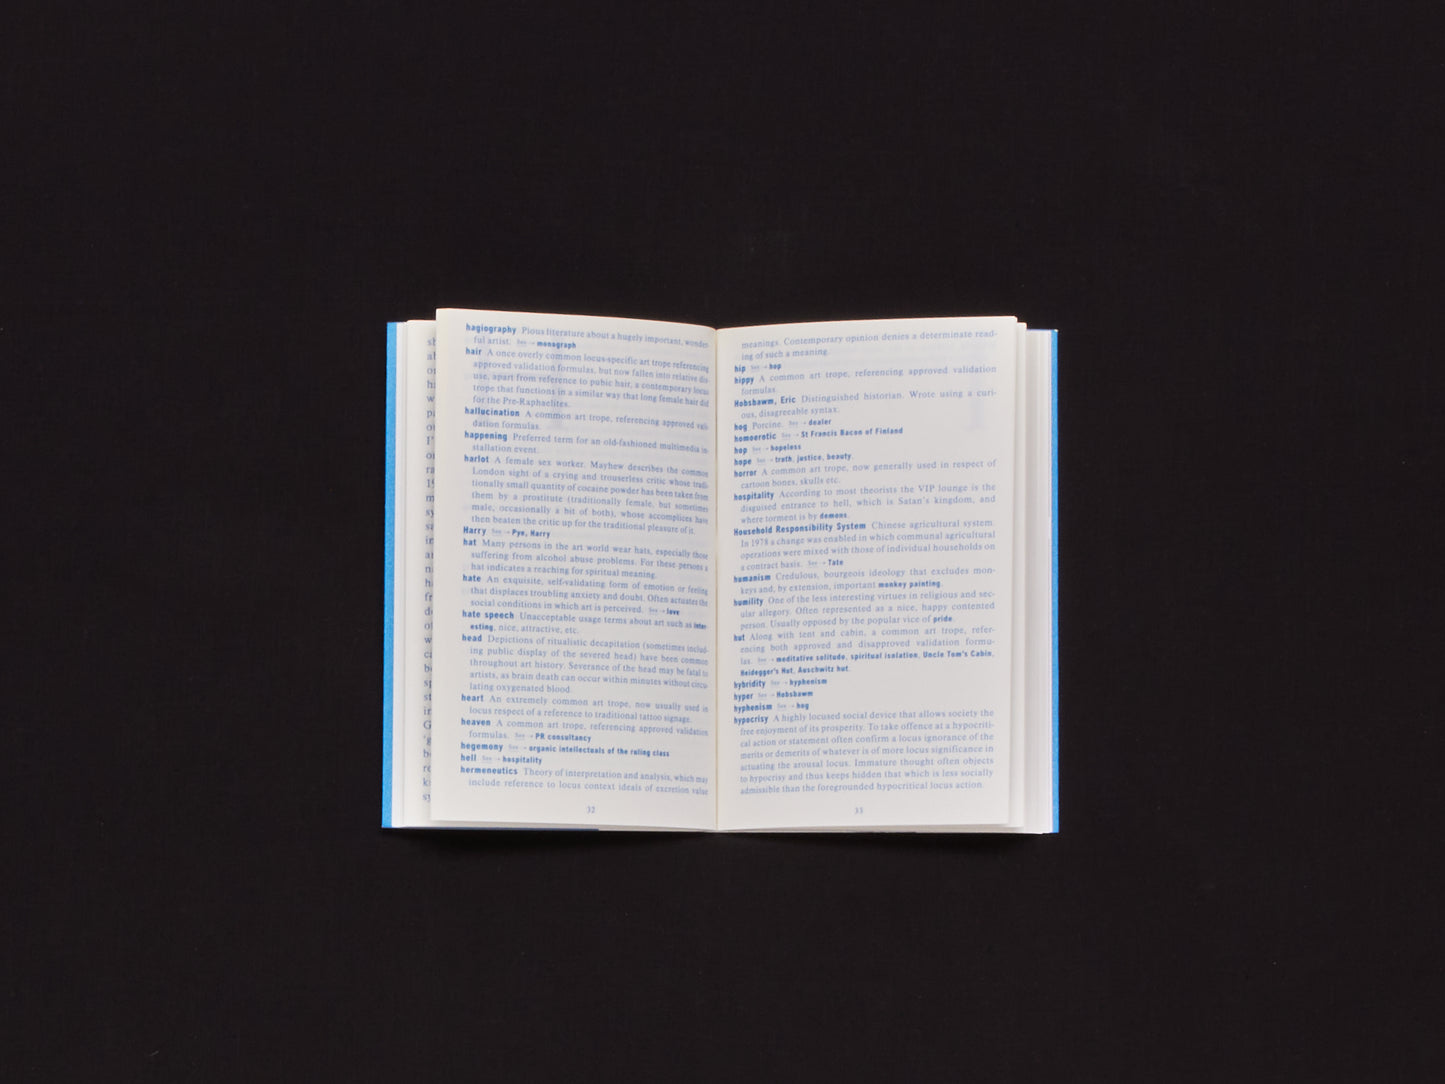 hagiography Pious literature about a hugely important, wonder-
ful artist. See → monograph
hair A once overly common locus-specific art trope referencing
approved validation formulas, but now fallen into relative dis-
use, apart from reference to pubic hair, a contemporary locus
trope that functions in a similar way that long female hair did
for the Pre-Raphaelites.
hallucination A common art trope, referencing approved vali-
dation formulas.
happening Preferred term for an old-fashioned multimedia in-
stallation event.
harlot A female sex worker. Mayhew describes the common
London sight of a crying and trouserless critic whose tradi-
tionally small quantity of cocaine powder has been taken from
them by a prostitute (traditionally female, but sometimes
male, occasionally a bit of both), whose accomplices have
then beaten the critic up for the traditional pleasure of it.
Harry See → Pye, Harry
hat Many persons in the art world wear hats, especially those
suffering from alcohol abuse problems. For these persons a
hat indicates a reaching for spiritual meaning.
hate An exquisite, self-validating form of emotion or feeling
that displaces troubling anxiety and doubt. Often actuates the
social conditions in which art is perceived. See → love
hate speech Unacceptable usage terms about art such as inter-
esting, nice, attractive, etc.
head Depictions of ritualistic decapitation (sometimes includ-
ing public display of the severed head) have been common
throughout art history. Severance of the head may be fatal to
artists, as brain death can occur within minutes without circu-
lating oxygenated blood.
heart An extremely common art trope, now usually used in
locus respect of a reference to traditional tattoo signage.
heaven A common art trope, referencing approved validation
formulas. See → PR consultancy
hegemony See → organic intellectuals of the ruling class
hell See → hospitality
hermeneutics Theory of interpretation and analysis, which may
include reference to locus context ideals of excretion value
32
meanings. Contemporary opinion denies a determinate read-
ing of such a meaning.
hip See → hop
hippy A common art trope, referencing approved validation
formulas.
Hobsbawm, Eric Distinguished historian. Wrote using a curi-
ous, disagreeable syntax.
hog Porcine. See → dealer
homoerotic See → St Francis Bacon of Finland
hop See → hopeless
hope See → truth, justice, beauty.
horror A common art trope, now generally used in respect of
cartoon bones, skulls etc.
hospitality According to most theorists the VIP lounge is the
disguised entrance to hell, which is Satan's kingdom, and
where torment is by demons.
Household Responsibility System Chinese agricultural system.
In 1978 a change was enabled in which communal agricultural
operations were mixed with those of individual households on
a contract basis. See → Tate
humanism Credulous, bourgeois ideology that excludes mon-
keys and, by extension, important monkey painting.
humility One of the less interesting virtues in religious and sec-
ular allegory. Often represented as a nice, happy contented
person. Usually opposed by the popular vice of pride.
hut Along with tent and cabin, a common art trope, refer-
encing both approved and disapproved validation formu-
las. See → meditative solitude, spiritual isolation, Uncle Tom's Cabin,
Heidegger's Hut, Auschwitz hut.
hybridity See → hyphenism
hyper See → Hobsbawm
hyphenism See → hog
hypocrisy A highly locused social device that allows society the
free enjoyment of its prosperity. To take offence at a hypocriti-
cal action or statement often confirm a locus ignorance of the
merits or demerits of whatever is of more locus significance in
actuating the arousal locus. Immature thought often objects
to hypocrisy and thus keeps hidden that which is less socially
admissible than the foregrounded hypocritical locus action.
33